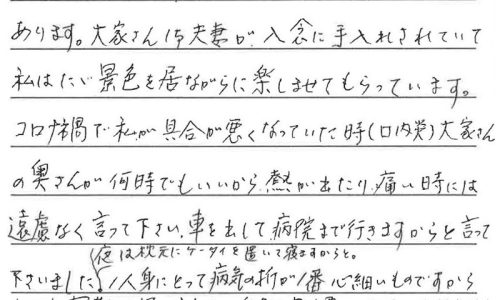 あります。大家さん御夫妻が、入念に手入れされていて
私はたゞ景色を居ながらに楽しませてもらっています。
コロナ禍で私が具合が悪くなっていた時(口内炎)大家さん
の奥さんが何時でもいいから、熱が出たり、痛い時には
遠慮なく言って下さい、車を出して病院まで行きますからと言って
(夜は枕元にケータイを置いて寝ますからと。
下さいました。1人身にとって病気の折が1番心細いものですから